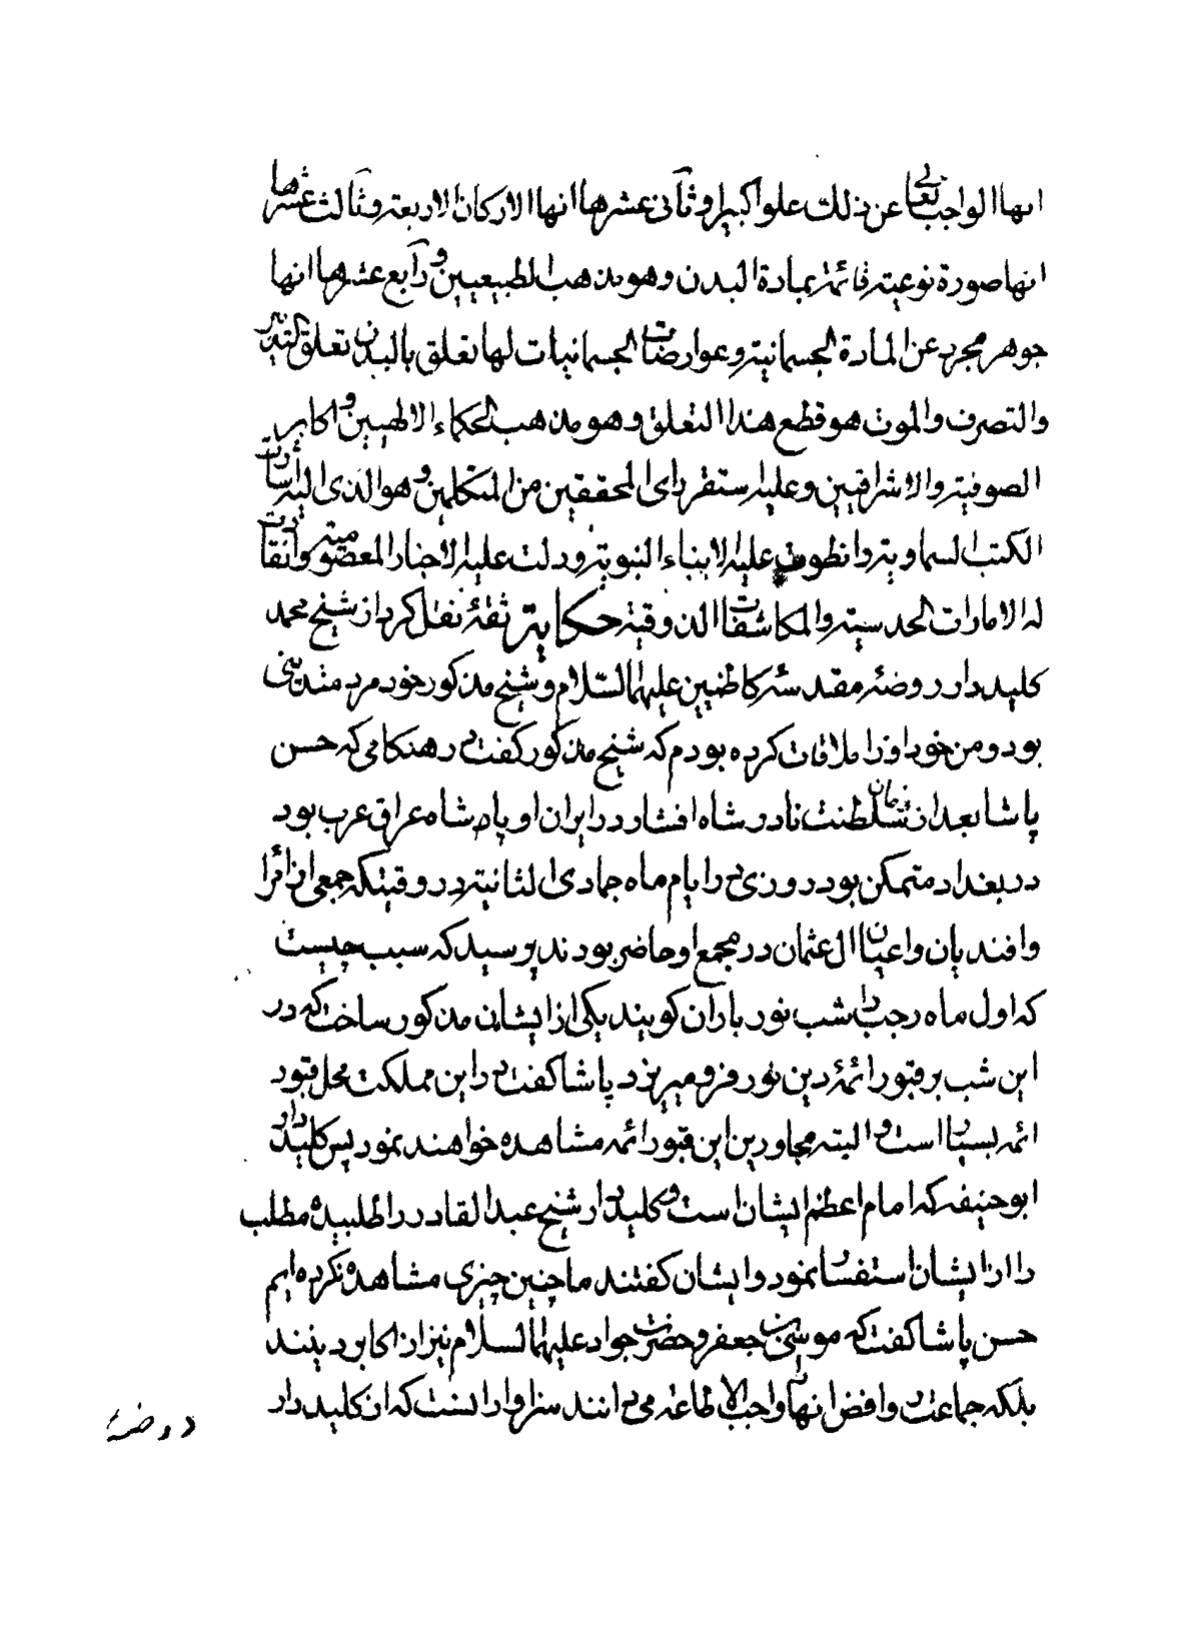 انها الواجب تعالی عن ذلك علوا كبیرا و ثانی عشرها انها الاركان الاربعة و ثالث عشرها
انها صورة نوعیة قائمة بمادة البدن و هو مذهب الطبیعیین و رابع عشرها انها
جوهر مجرد عن المادة الجسمانیة و عوارضات الجسمانیات لها تعلق بالبدن تعلق التدبیر
والتصرف والموت هو قطع هذا التعلق و هو مذهب الحكماء الالهیین و اكابر
الصوفیة والاشراقیین و علیه ستقر رای المحققین من المتكلمین و هو الذی الیه اشارت
الكتب السماویة و انطوت علیه الانباء النبویة و دلت علیه الاخبار المعصومیة و انقادت
له الامارات الحدسیة والمكاشفات الذوقیة حكایة ثقۀ نقل كرد از شیخ محمد
كلیددار روضۀ مقدسۀ كاظمین علیهما السلام و شیخ مذكور خود مرد متدینی
بود و من خود اورا ملاقات كرده بودم كه شیخ مذكور كفت در هنكامی كه حسن
پاشا بعد از زمان سلطنت نادر شاه افشار در ایران او پادشاه عراق عرب بود
در بغداد متمكن بود روزی در ایام ماه جمادی الثانیة در وقتیكه جمعی از افرا
و افندیان و اعیان ال عثمان در مجمع او حاضر بودند پرسید كه سبب چیست
كه اول ماه رجب را شب نور باران كویند یكی از ایشان مذكور ساخت كه در
این شب بر قبور ائمۀ دین نور فرو میریزد پاشا كفت در این مملكت محل قبور
ائمه بسیار است و البته مجاورین این قبور ائمه مشاهده خواهند نمود پس كلیددار
ابو حنیفه كه امام اعظم ایشان است و كلیددار شیخ عبد القادر را طلبیده مطلب
را از ایشان استفسار نمود و ایشان كفتند ما چنین چیزی مشاهده نكرده ایم
حسن پاشا كفت كه موسی بن جعفر و حضرت جواد علیهما السلام نیز از اكابر دینند
بلكه جماعت روافض انها را واجب الاطاعة می دانند سزاوار انست كه از كلیددار
روضۀ